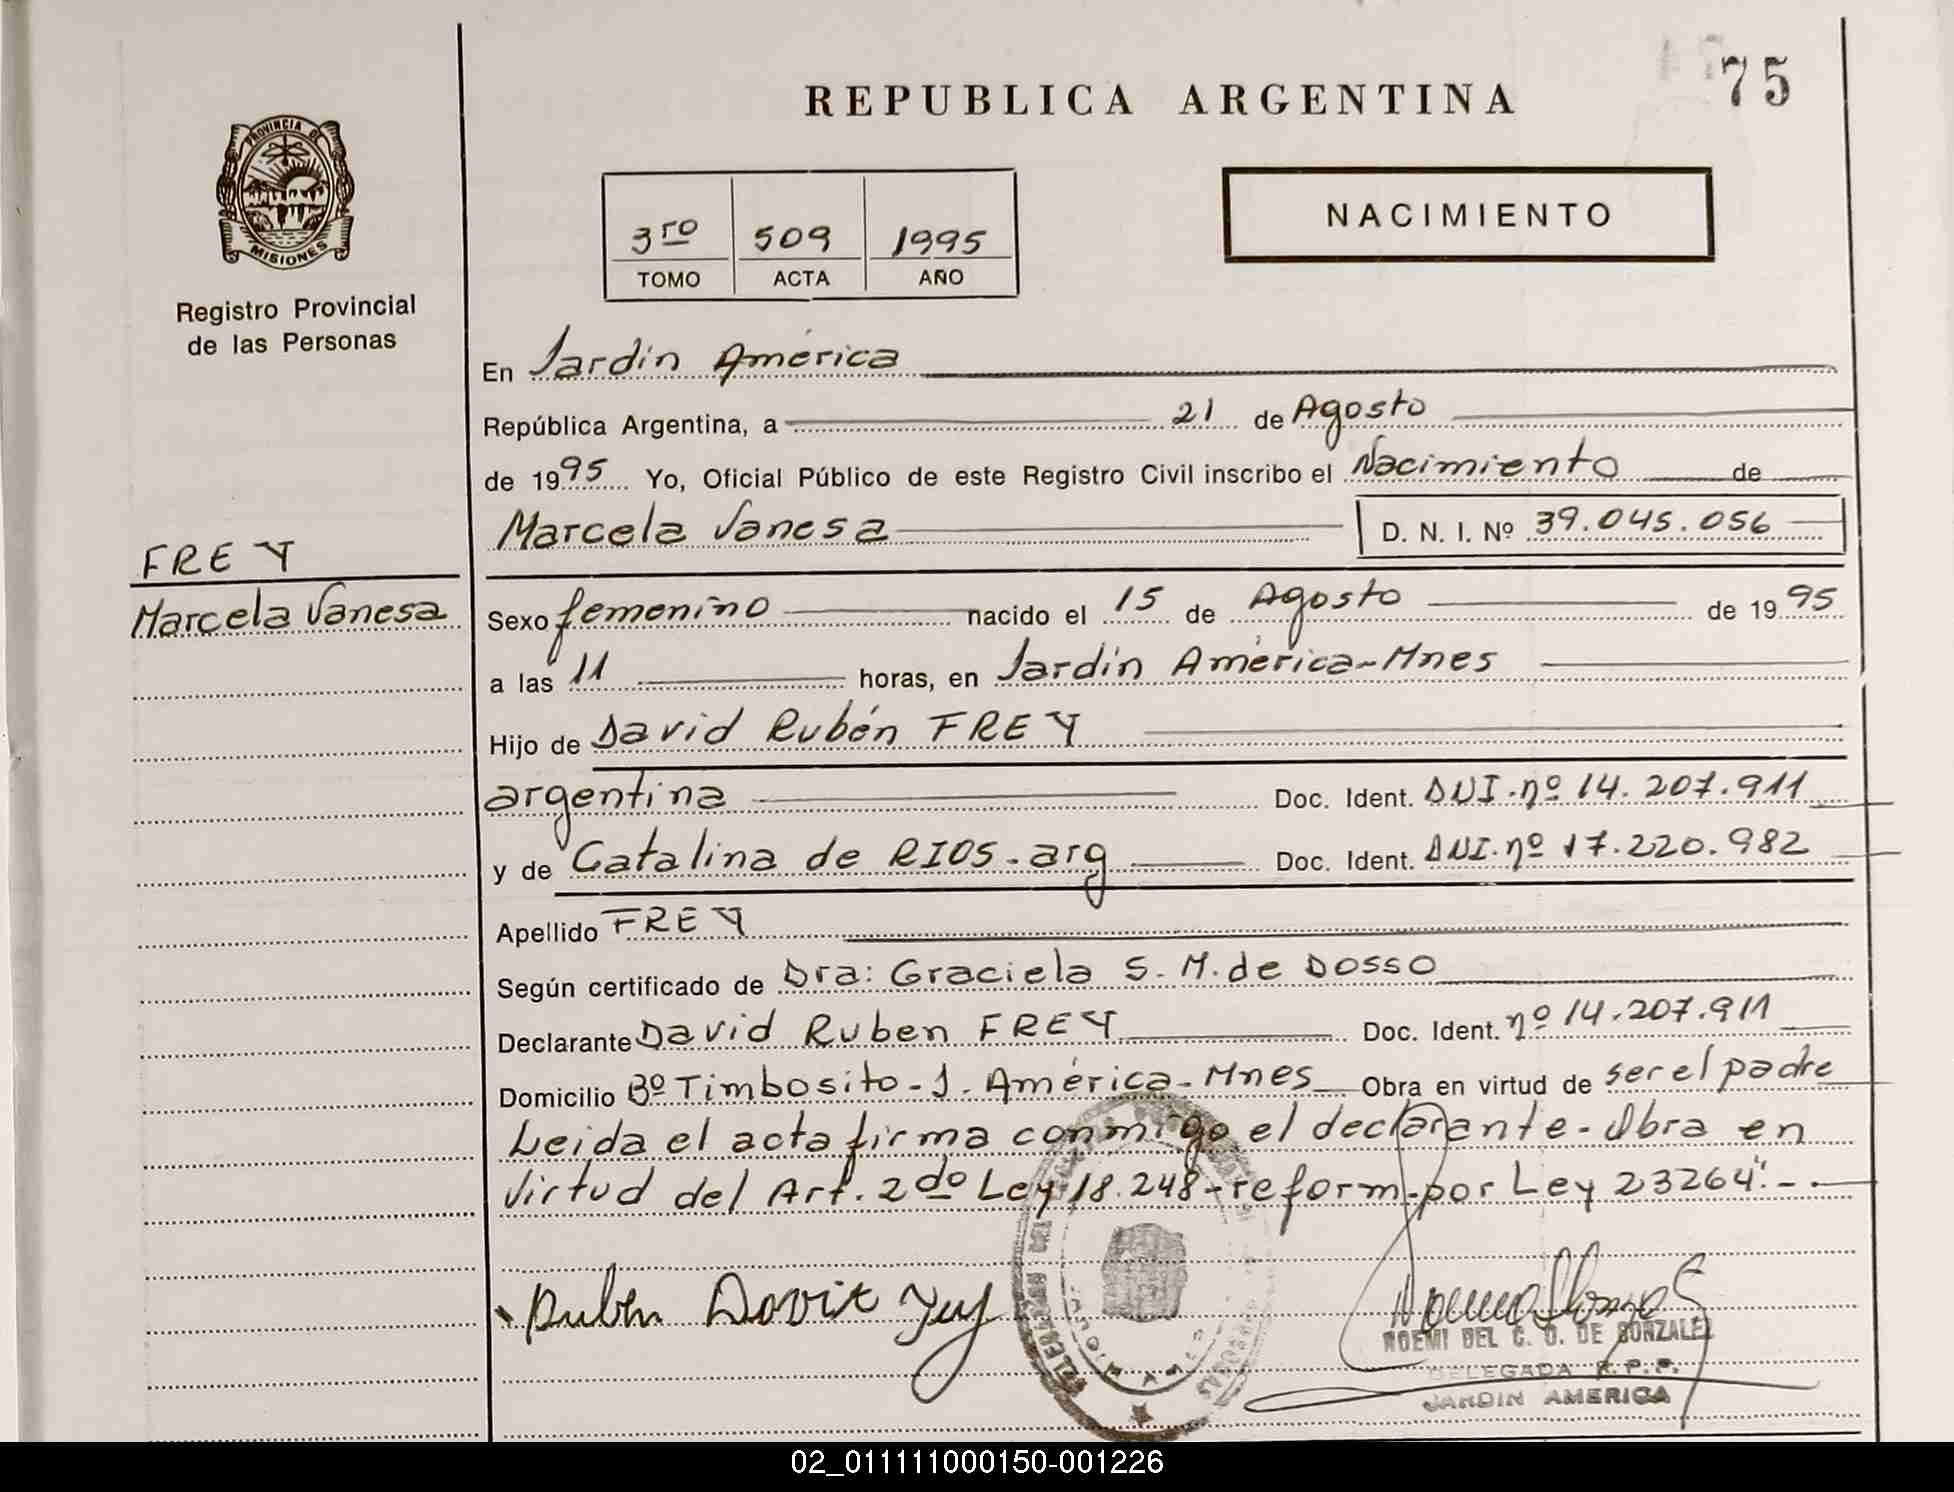 75
REPUBLICA ARGENTINA
PROVINCIA DE
MISIONES
Registro Provincial
de las Personas
3ro 509 1995
TOMO ACTA AÑO
NACIMIENTO
En Jardín América
República Argentina, a 21 de Agosto
de 1995 Yo, Oficial Público de este Registro Civil inscribo el Nacimiento de
Marcela Vanesa D. N. I. Nº 39.045.056
FREY
Marcela Vanesa
Sexo femenino nacido el 15 de Agosto de 1995
a las 11 horas, en Jardín América-Mnes
Hijo de David Rubén FREY
argentina Doc. Ident. DNI.nº 14.207.911
y de Catalina de RIOS-arg Doc. Ident. DNI.nº 17.220.982
Apellido FREY
Según certificado de Dra: Graciela S. M. de DOSSO
Declarante David Ruben FREY Doc. Ident. nº 14.207.911
Domicilio Bº Timbosito-J. América-Mnes Obra en virtud de ser el padre
Leida el acta firma conmigo el declarante-Obra en
virtud del Art. 2do Ley 18.248-reform.por Ley 23264".-.
Ruben Davit
NOEMI DEL C. O. DE GONZALEZ
DELEGADA R.P.P.
JARDIN AMERICA
02_011111000150-001226